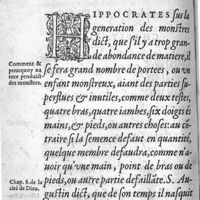 HIPPOCRATES sus la
generation des monstres
dict, que s'il y a trop gran-
de abondance de matiere, il
se fera grand nombre de portees, ou vn
enfant monstrueux, aiant des parties su-
perflues & inutiles, comme deux testes,
quatre bras, quatre iambes, six doigts és
mains, & pieds, ou autres choses: au cō-
traire si la semence defaut en quantité,
quelque membre defaudra, comme n'a-
uoir qu'vne main, point de bras ou de
pieds, ou autre partie defaillãte. S. Au-
gustin dict, que de son temps il nasquit
Comment &
pourquoy na
ture produit
des monstres.
Chap. 8. de la
cité de Dieu.